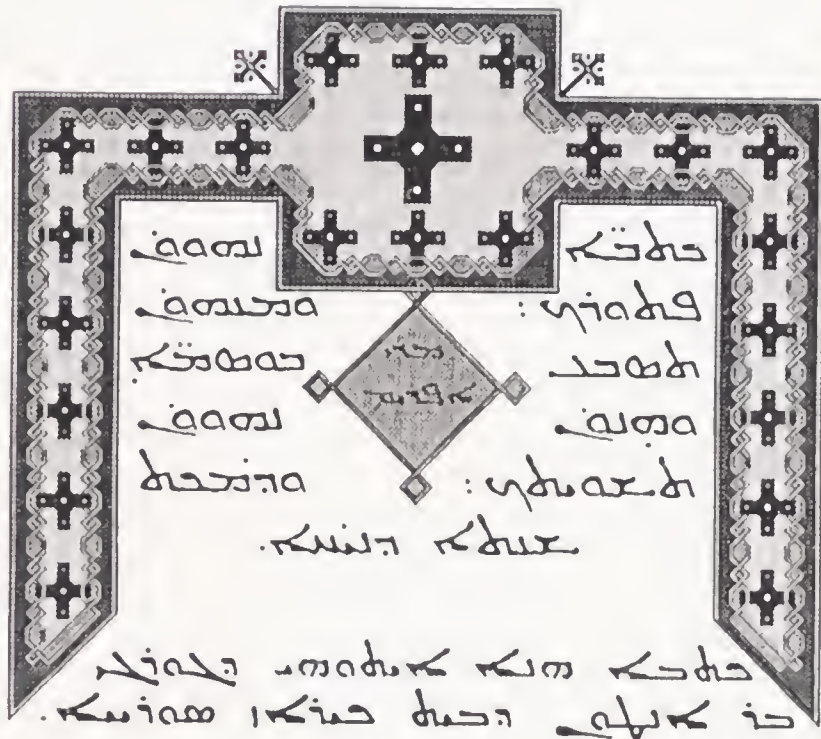 ܟܬܒ̈ܐ ܢܗܘܘܢ
ܦܬܘܪܟ: ܘܡܢܗܘܢ
ܬܣܒܥ ܒܘܣܡ̈ܐ
ܘܗܢܘܢ ܢܗܘܘܢ
ܬܫܘܝܬܟ:
ܫܢܬܐ ܕܢܝܚܐ.
ܐܦܪܝܡ
ܟܬܒܐ ܗܢܐ ܐܝܬܘܗܝ ܕܓܘܪܓ
ܒܪ ܐܢܛܘܢ ܕܒܝܬ ܟܝܪܐܙ ܣܘܪܝܝܐ.